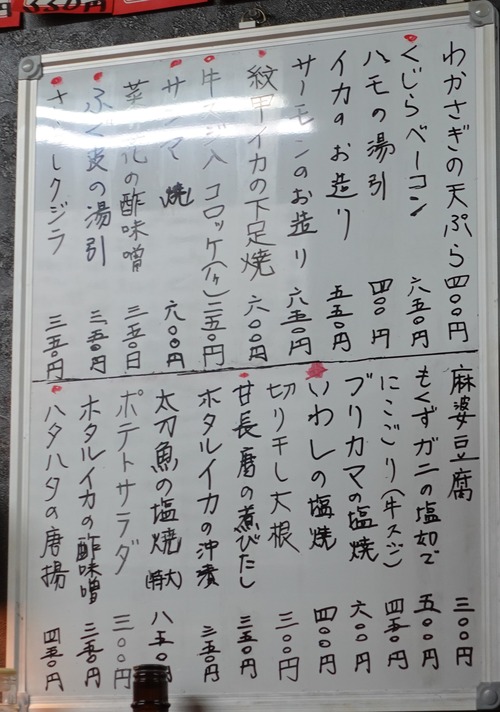 わかさぎの天ぷら 四〇〇円
くじらベーコン 六五〇円
ハモの湯引 四〇〇円
イカのお造り 五五〇円
サーモンのお造り 六五〇円
紋甲イカの下足焼 六〇〇円
牛スジ入コロッケ(1ヶ) 二五〇円
サンマ 焼 六〇〇円
菜の花の酢味噌 三五〇円
ふぐ皮の湯引 三五〇円
さらしクジラ 三五〇円
麻婆豆腐 三〇〇円
もくずガニの塩ゆで 五〇〇円
にこごり(牛スジ) 四五〇円
ブリカマの塩焼 六〇〇円
いわしの塩焼 四〇〇円
切り干し大根 三〇〇円
甘長唐の煮びたし 三五〇円
ホタルイカの沖漬 三五〇円
太刀魚の塩焼(特大) 八五〇円
ポテトサラダ 三〇〇円
ホタルイカの酢味噌 三五〇円
ハタハタの唐揚 四五〇円